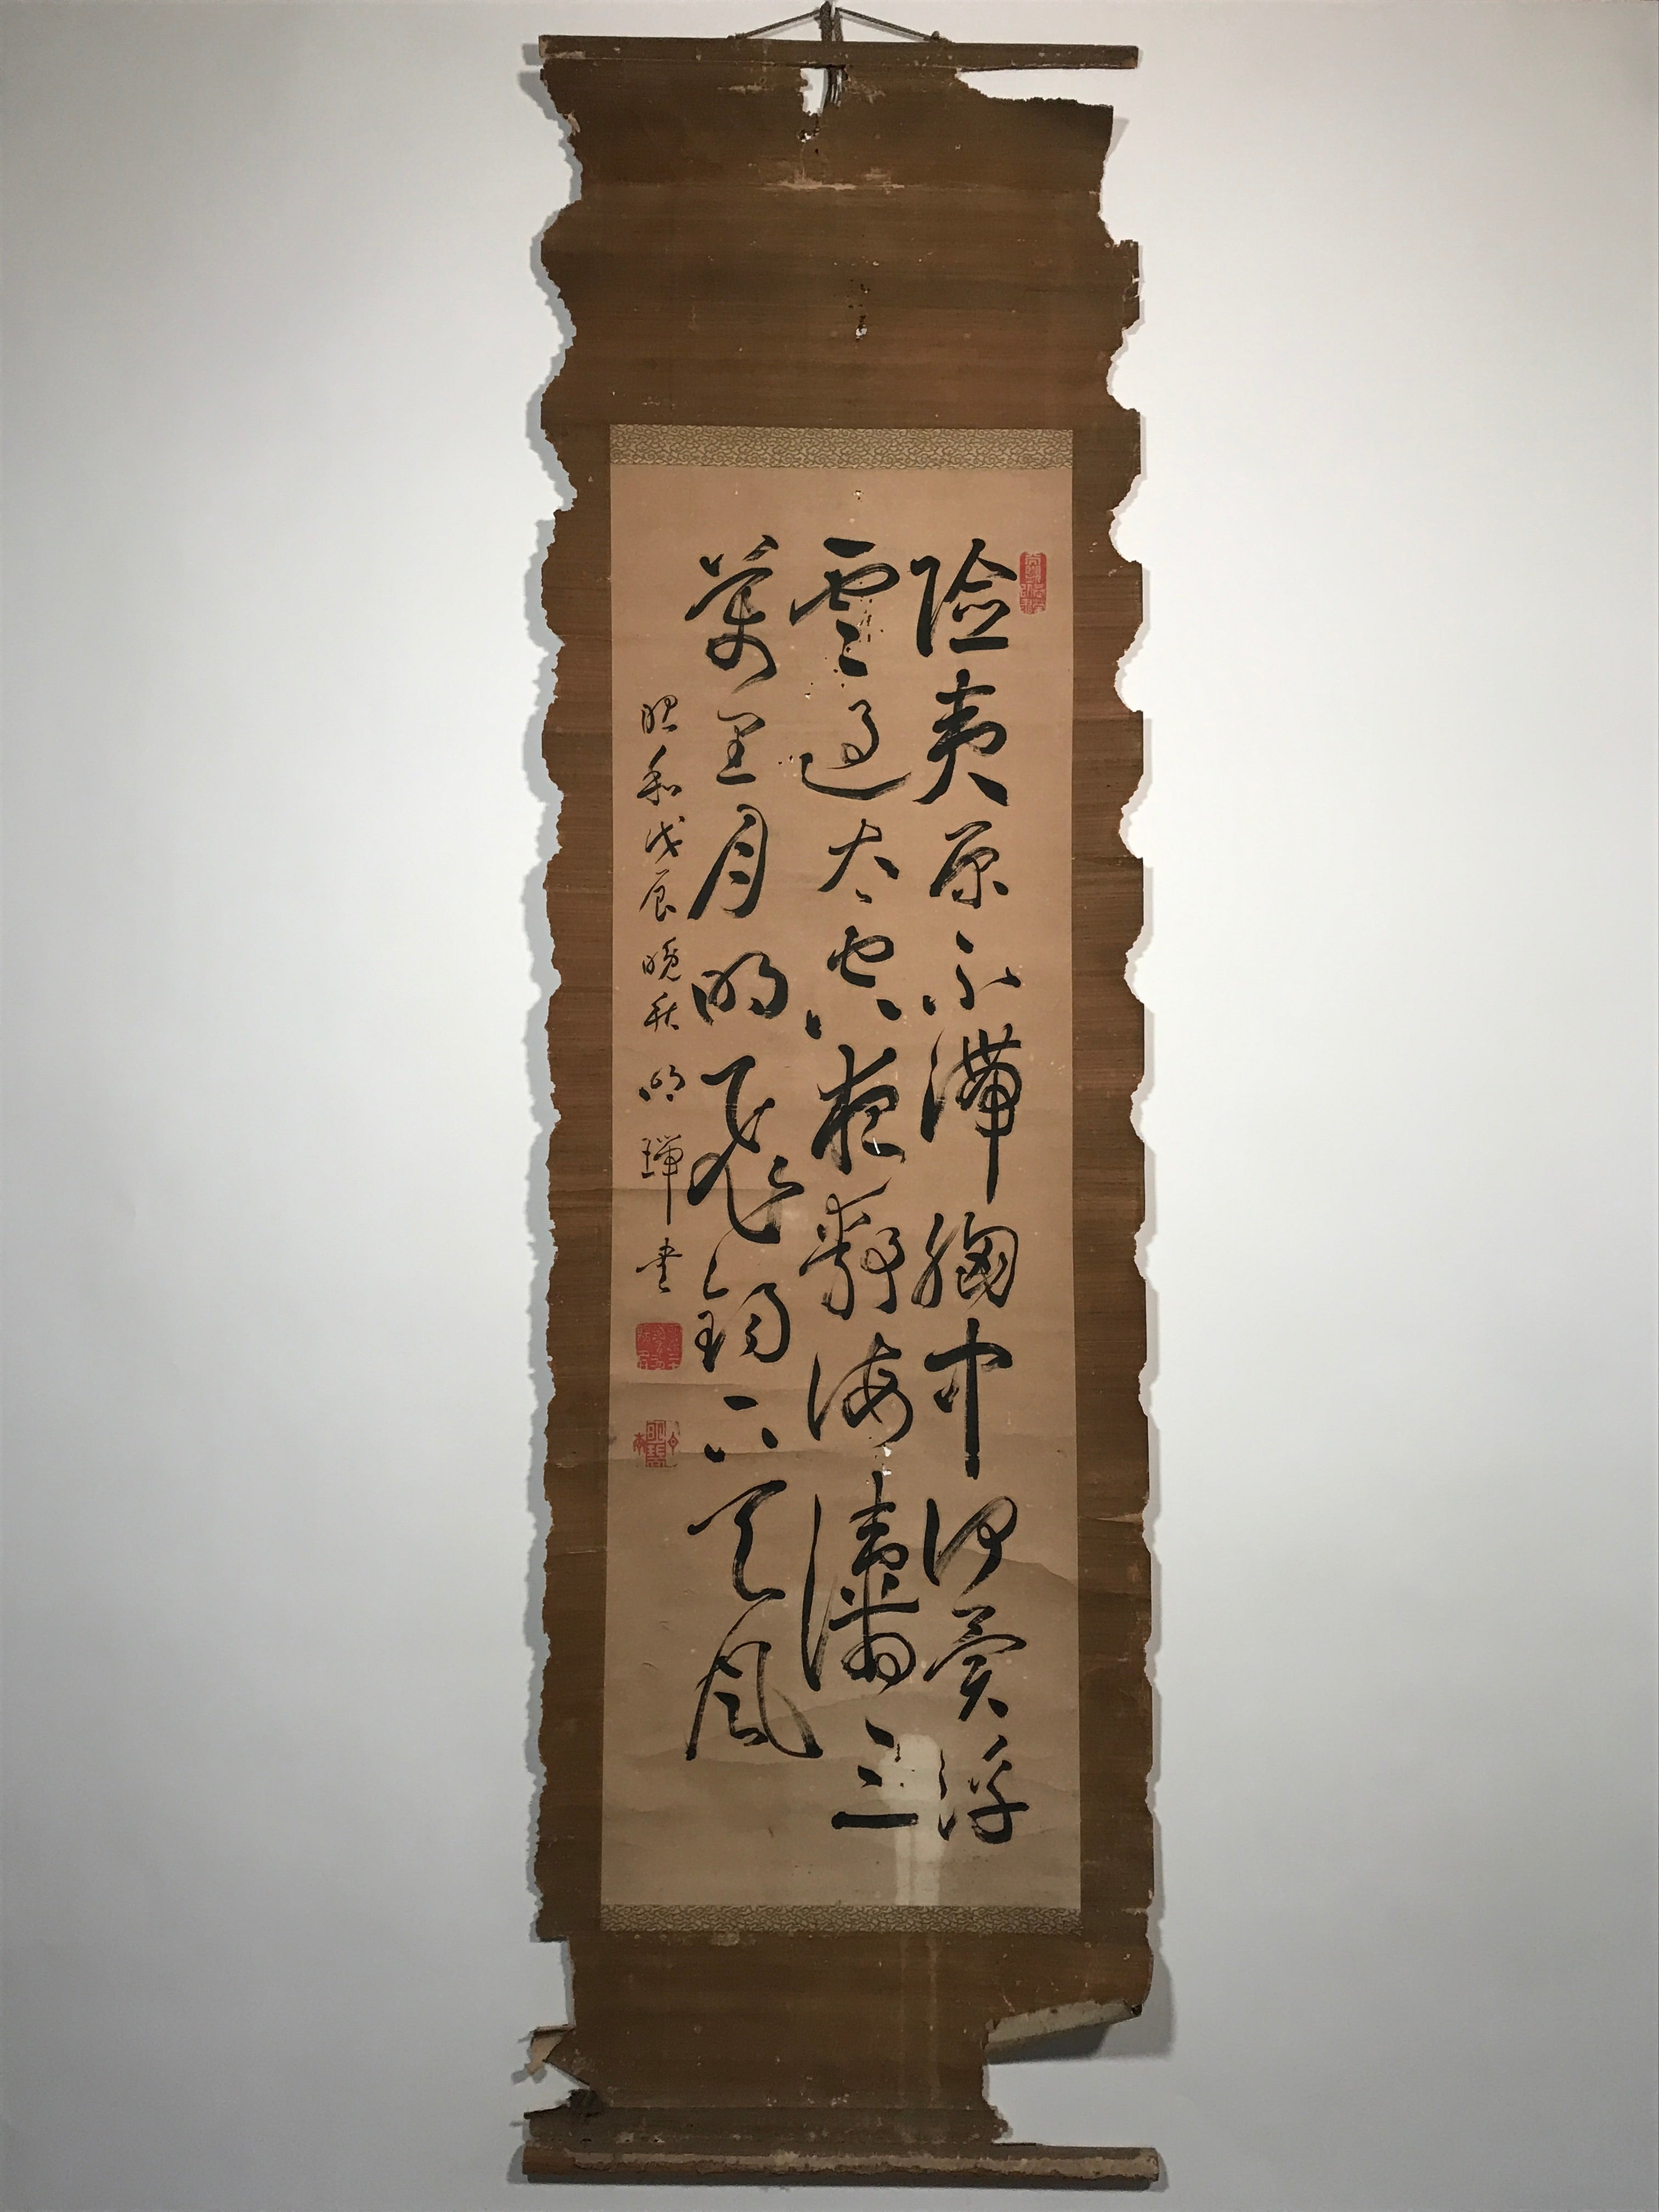 險夷原不滯胸中何異浮
雲過太空夜靜海濤三
萬里月明飛錫下天風
昭和戊辰晚秋 明書